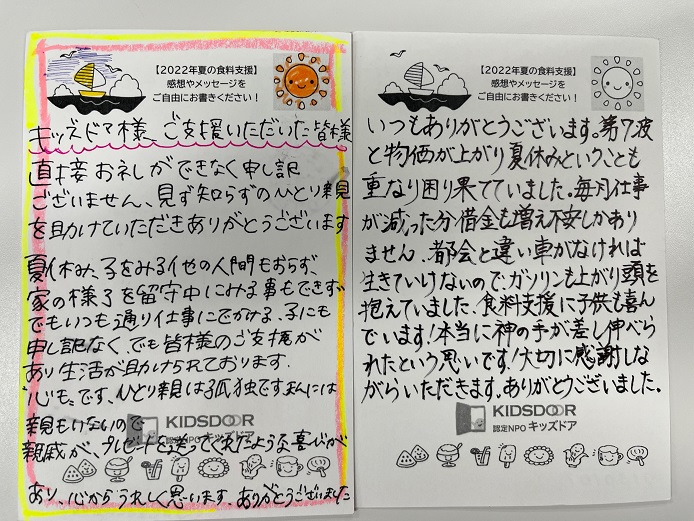 【2022年夏の食料支援】
感想やメッセージを
ご自由にお書きください！
キッズドア様、ご支援いただいた皆様
直接お礼ができなく申し訳
ございません、見ず知らずのひとり親
を助けていただきありがとうございます
夏休み、子をみる他の人間もおらず、
家の様子を留守中にみる事もできず
でもいつも通り仕事にでかける、子にも
申し訳なく、でも皆様のご支援が
あり生活が助けられております.
心も。です、ひとり親は孤独です。私には
親もいないので
親戚が、プレゼントを送ってくれたような喜びが
あり、心からうれしく思います。ありがとうございました
KIDSDOOR
認定NPO キッズドア
【2022年夏の食料支援】
感想やメッセージを
ご自由にお書きください！
いつもありがとうございます。第7波
と物価が上がり夏休みということも
重なり困り果てていました。毎月仕事
が減った分借金も増え不安しかあり
ません。都会と違い車がなければ
生きていけないので、ガソリンも上がり頭を
抱えていました。食料支援に子供も喜ん
でいます!本当に神の手が差し伸べら
れたという思いです!大切に感謝しな
がらいただきます。ありがとうございました。
KIDSDOOR
認定NPO キッズドア